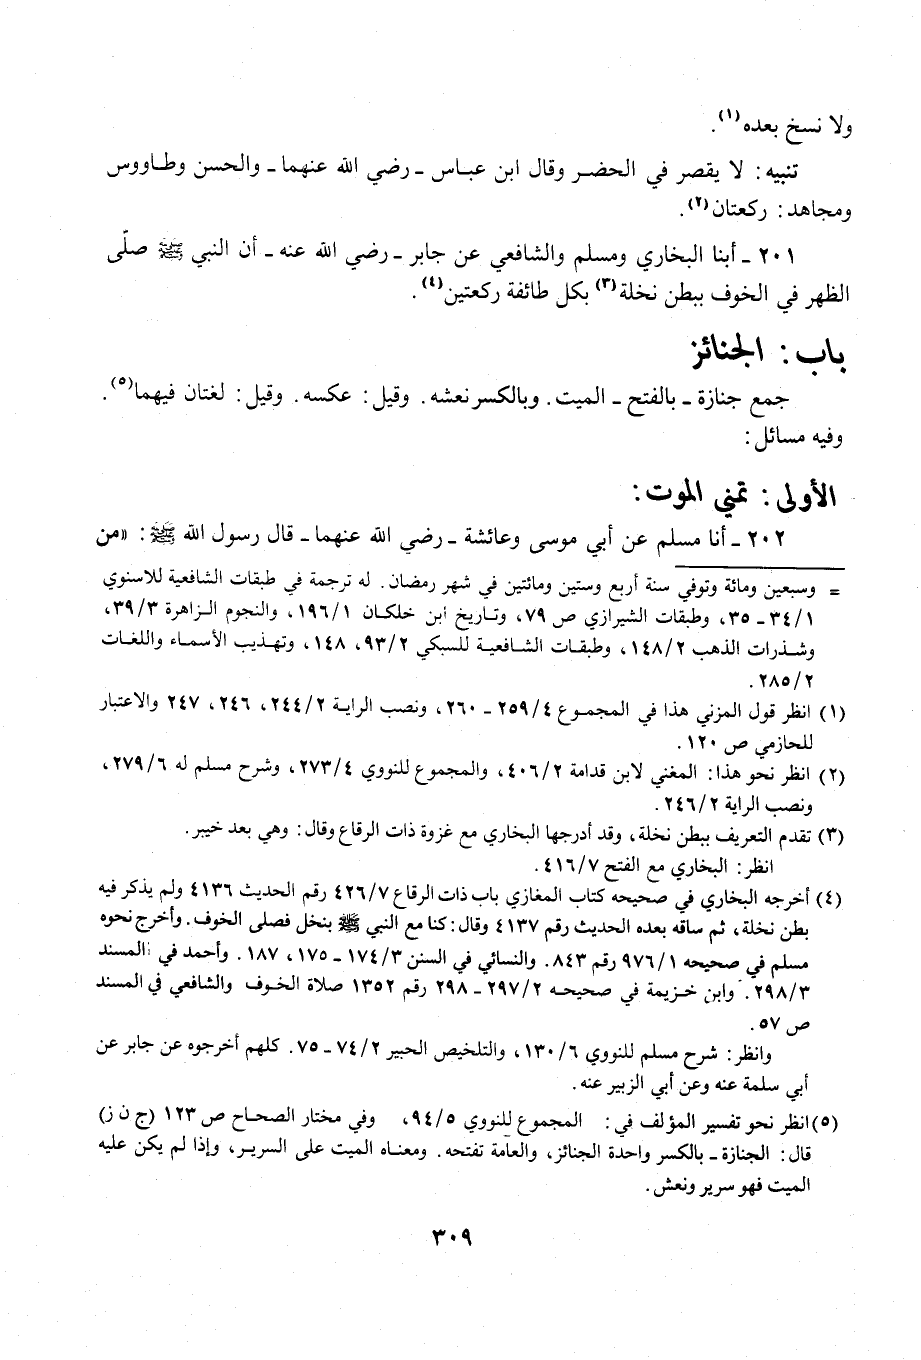 ولا نسخ بعده(١).
تنبيه: لا يقصر في الحضر وقال ابن عباس ـ رضي الله عنهما ـ والحسن وطاووس
ومجاهد: ركعتان(٢).
٢٠١ ـ أبنا البخاري ومسلم والشافعي عن جابر ـ رضي الله عنه ـ أن النبي ﷺ صلّى
الظهر في الخوف ببطن نخلة(٣) بكل طائفة ركعتين(٤).
باب: الجنائز
جمع جنازة ـ بالفتح ـ الميت. وبالكسر نعشه. وقيل: عكسه. وقيل: لغتان فيهما(٥).
وفيه مسائل:
الأولى: تمني الموت:
٢٠٢ ـ أنا مسلم عن أبي موسى وعائشة ـ رضي الله عنهما ـ قال رسول الله ﷺ: «من
= وسبعين ومائة وتوفي سنة أربع وستين ومائتين في شهر رمضان. له ترجمة في طبقات الشافعية للاسنوي
٣٤/١ ـ ٣٥، وطبقات الشيرازي ص ٧٩، وتاريخ ابن خلكان ١٩٦/١، والنجوم الزاهرة ٣٩/٣،
وشذرات الذهب ١٤٨/٢، وطبقات الشافعية للسبكي ٩٣/٢، ١٤٨، وتهذيب الأسماء واللغات
٢٨٥/٢.
(١) انظر قول المزني هذا في المجموع ٢٥٩/٤ ـ ٢٦٠، ونصب الراية ٢٤٤/٢، ٢٤٦، ٢٤٧ والاعتبار
للحازمي ص ١٢٠.
(٢) انظر نحو هذا: المغني لابن قدامة ٤٠٦/٢، والمجموع للنووي ٢٧٣/٤، وشرح مسلم له ٢٧٩/٦،
ونصب الراية ٢٤٦/٢.
(٣) تقدم التعريف ببطن نخلة، وقد أدرجها البخاري مع غزوة ذات الرقاع وقال: وهي بعد خيبر.
انظر: البخاري مع الفتح ٤١٦/٧.
(٤) أخرجه البخاري في صحيحه كتاب المغازي باب ذات الرقاع ٤٢٦/٧ رقم الحديث ٤١٣٦ ولم يذكر فيه
بطن نخلة، ثم ساقه بعده الحديث رقم ٤١٣٧ وقال: كنا مع النبي ﷺ بنخل فصلى الخوف. وأخرج نحوه
مسلم في صحيحه ٩٧٦/١ رقم ٨٤٣. والنسائي في السنن ١٧٤/٣ ـ ١٧٥، ١٨٧. وأحمد في المسند
٢٩٨/٣. وابن خزيمة في صحيحه ٢٩٧/٢ ـ ٢٩٨ رقم ١٣٥٢ صلاة الخوف والشافعي في المسند
ص ٥٧.
وانظر: شرح مسلم للنووي ١٣٠/٦، والتلخيص الحبير ٧٤/٢ ـ ٧٥. كلهم أخرجوه عن جابر عن
أبي سلمة عنه وعن أبي الزبير عنه.
(٥) انظر نحو تفسير المؤلف في: المجموع للنووي ٩٤/٥، وفي مختار الصحاح ص ١٢٣ (ج ن ز)
قال: الجنازة ـ بالكسر واحدة الجنائز، والعامة تفتحه. ومعناه الميت على السرير، وإذا لم يكن عليه
الميت فهو سرير ونعش.
٣٠٩